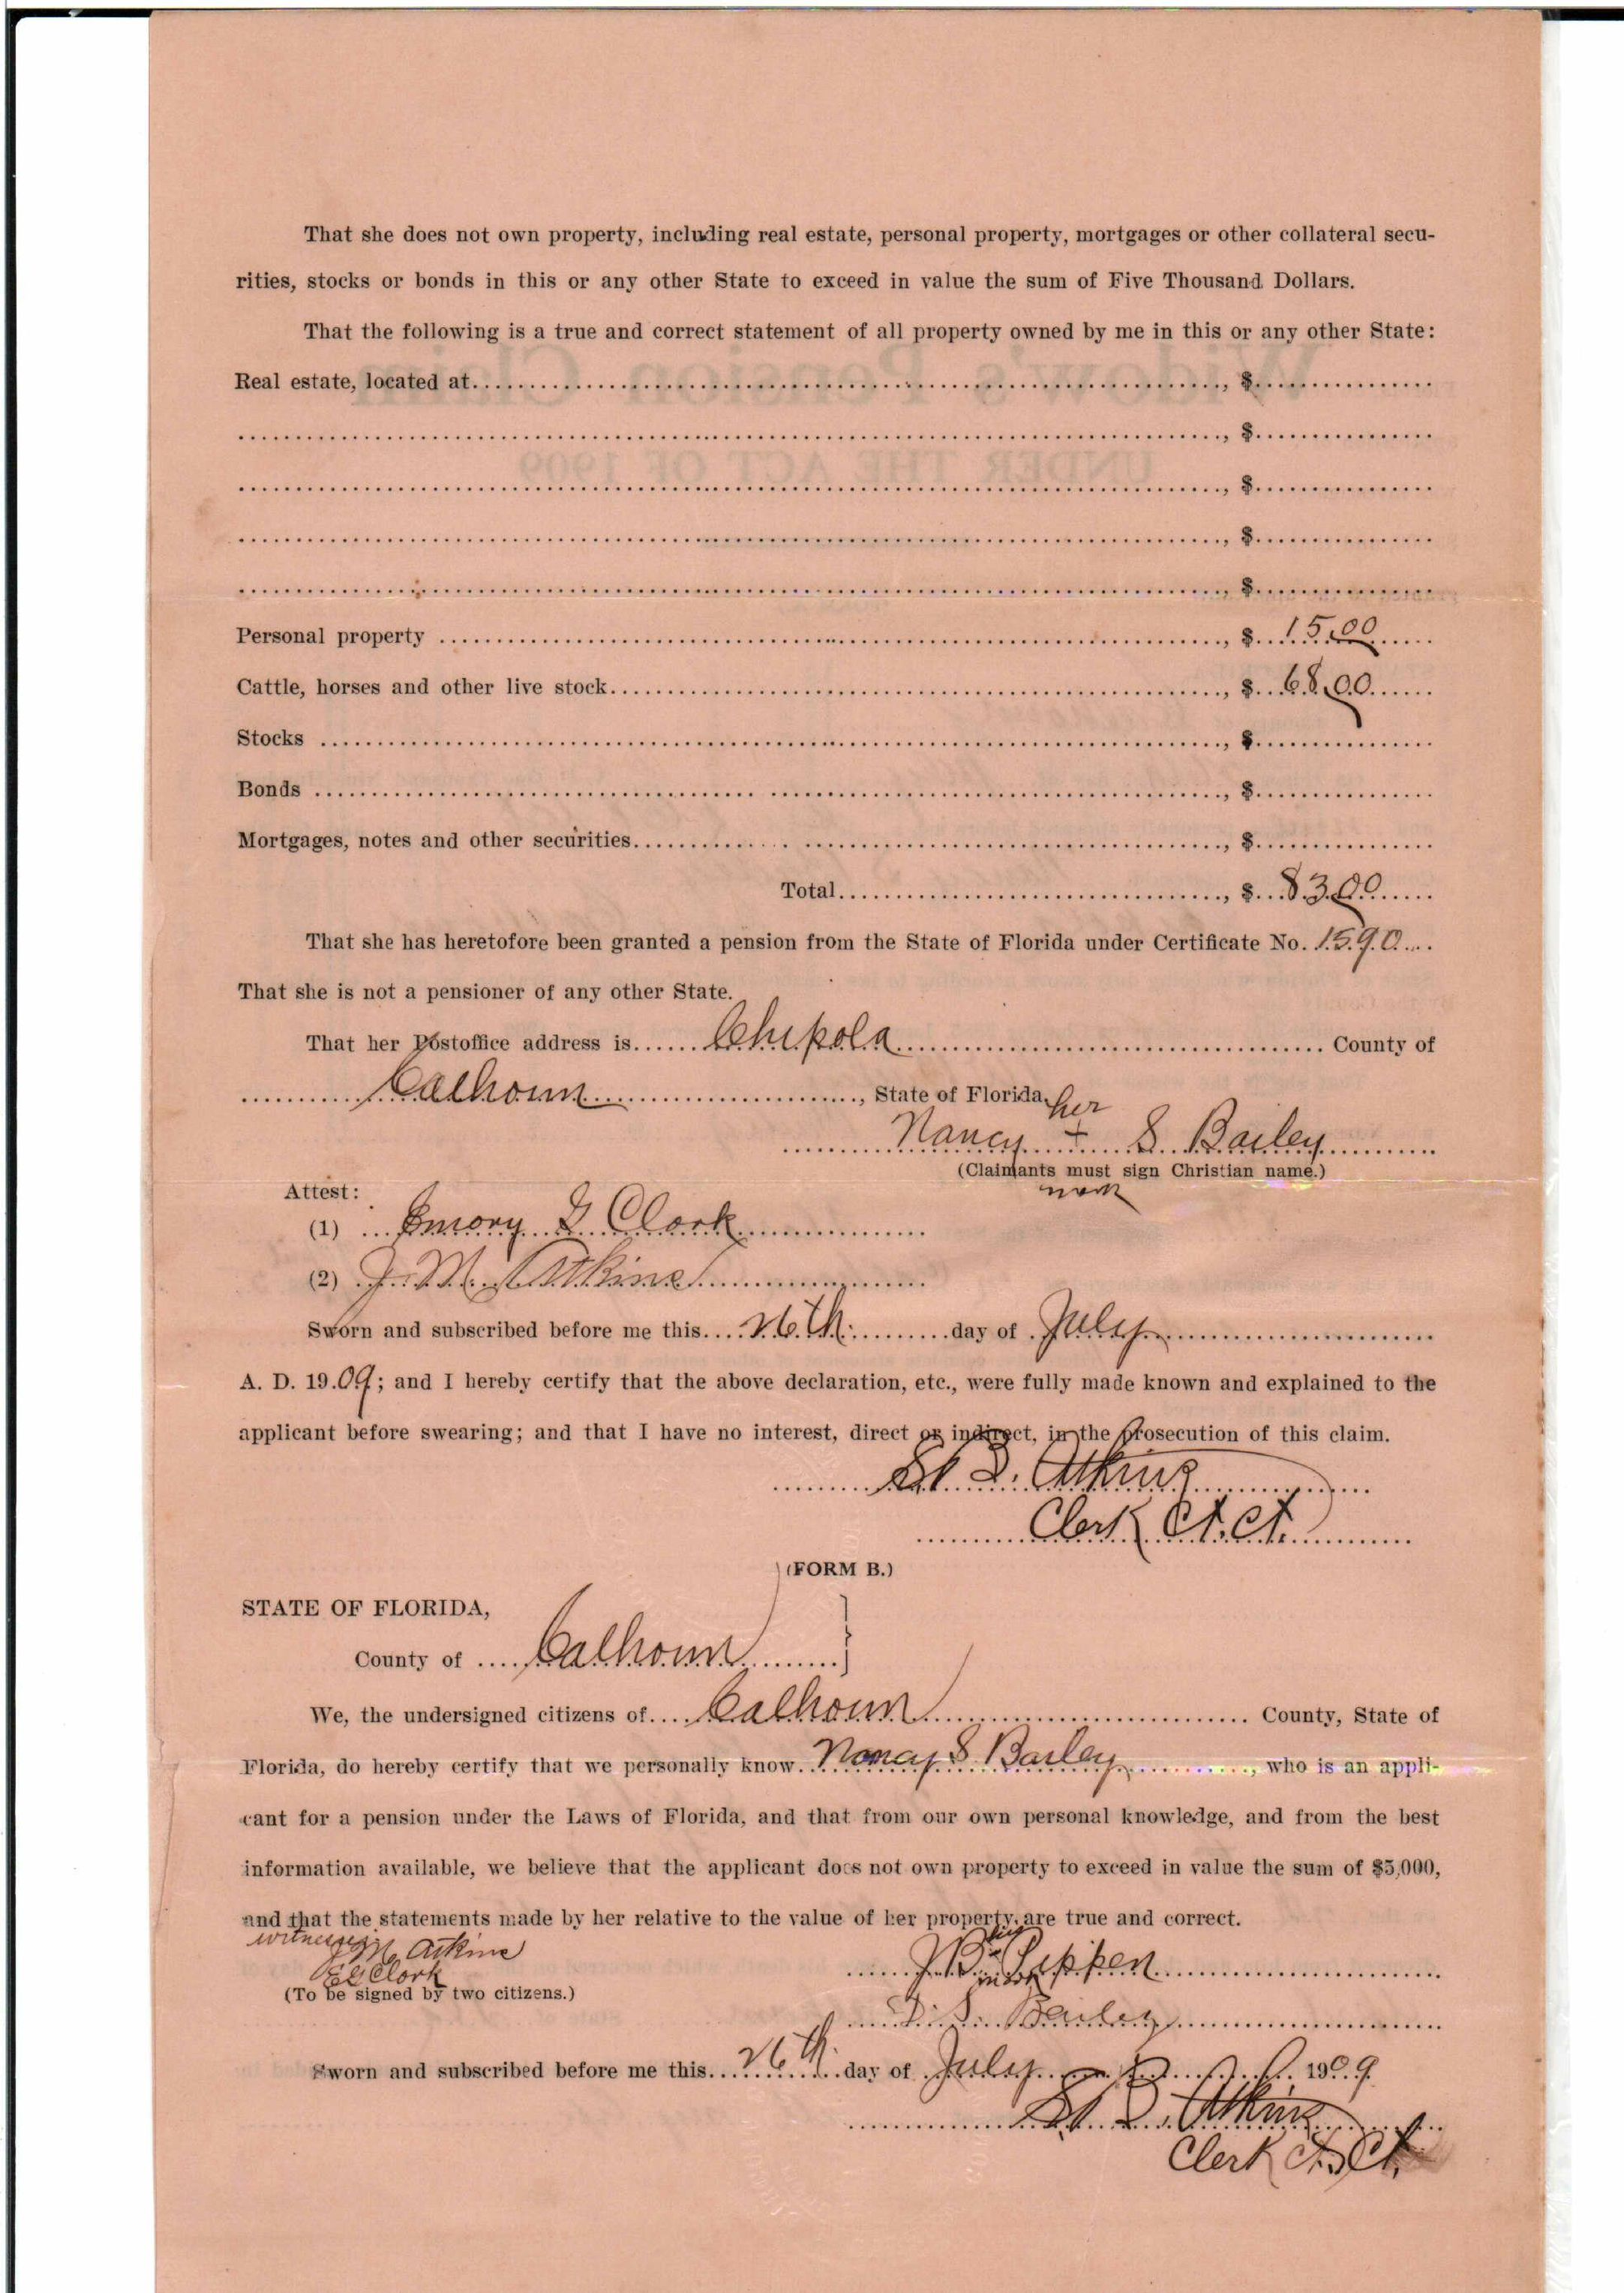 That she does not own property, including real estate, personal property, mortgages or other collateral secu-
rities, stocks or bonds in this or any other State to exceed in value the sum of Five Thousand Dollars.
That the following is a true and correct statement of all property owned by me in this or any other State:
Real estate, located at..............................., $...............
..............................., $...............
..............................., $...............
..............................., $...............
..............................., $...............
Personal property ..............................., $ 15.00
Cattle, horses and other live stock..............................., $ 68.00
Stocks ..............................., $...............
Bonds ..............................., $...............
Mortgages, notes and other securities..............................., $...............
Total..............................., $ 83.00
That she has heretofore been granted a pension from the State of Florida under Certificate No. 1590
That she is not a pensioner of any other State.
That her Postoffice address is...... Chipola ............... County of
Calhoun ..............................., State of Florida.
her
Nancy + S. Bailey
(Claimants must sign Christian name.)
mark
Attest:
(1) Emory G Clark
(2) J. M. Atkins
Sworn and subscribed before me this.... 26th .........day of July
A. D. 1909; and I hereby certify that the above declaration, etc., were fully made known and explained to the
applicant before swearing; and that I have no interest, direct or indirect, in the prosecution of this claim.
Atkins
Clerk Ct. Ct.
(FORM B.)
STATE OF FLORIDA,
County of .... Calhoun
We, the undersigned citizens of.... Calhoun ............... County, State of
Florida, do hereby certify that we personally know Nancy S. Bailey ..........., who is an appli-
cant for a pension under the Laws of Florida, and that from our own personal knowledge, and from the best
information available, we believe that the applicant does not own property to exceed in value the sum of $5,000,
and that the statements made by her relative to the value of her property, are true and correct.
witnesses
J M Atkins
E G Clark
(To be signed by two citizens.)
his
J. B. x
mark
Bailey
Sworn and subscribed before me this.... 26th day of July A. D. 1909
Atkins
Clerk Ct. Ct.